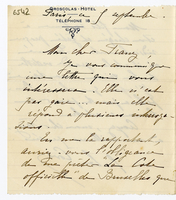 6542
GROSCLAS-HOTEL
TELEPHONE 18
Paris, ce 5 septembre.
Mon cher Franz,
Je vous communique
une lettre qui vous
intéressera. Elle n'est
pas gaie... mais elle
répond à plusieurs
En me la rapportant,
auriez-vous l'obligeance
de
officielle de Bruxelles que